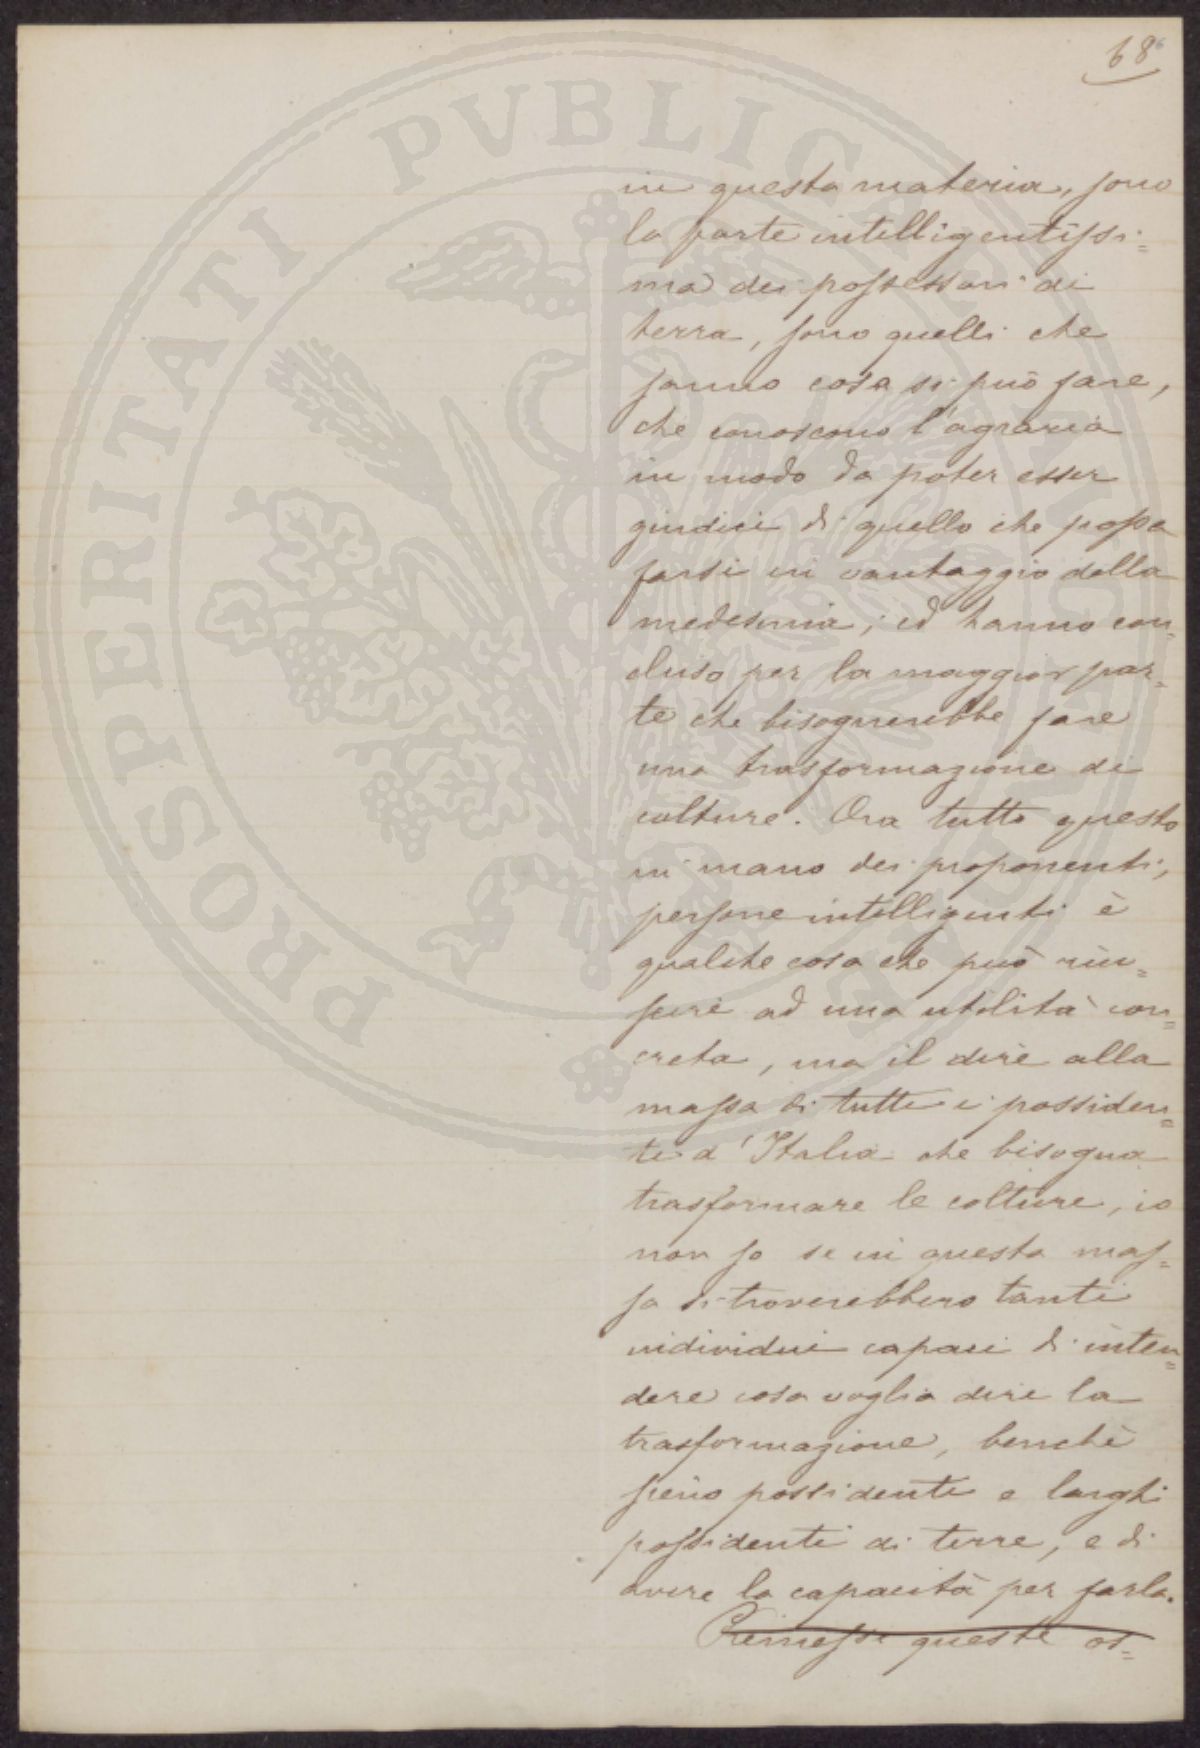 68
in questa materia, sono
la parte intelligentissi=
ma dei possessori di
terra, sono quelli che
sanno cosa si può fare,
che conoscono l'agraria
in modo da poter esser
giudici di quello che possa
farsi in vantaggio della
medesima; ed hanno con=
cluso per la maggior par=
te che bisognerebbe fare
una trasformazione di
colture. Ora tutto questo
in mano dei proponenti,
persone intelligenti è
qualche cosa che può riu=
scire ad una utilità con=
creta, ma il dire alla
massa di tutti i possiden=
ti d'Italia che bisogna
trasformare le colture, io
non so se in questa mas=
sa si troverebbero tanti
individui capaci di inten=
dere cosa voglia dire la
trasformazione, benchè
sieno possidenti e larghi
possidenti di terre, e di
avere la capacità per farla.
Premesse queste os=
PROSPERITATI PVBLICAE